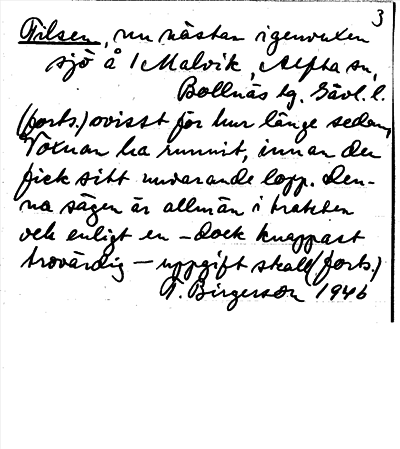 3
Filsen, nu nästan igenvuxen
sjö å 1 Malvik, Alfta sn,
Bollnäs tg. Gävl. l.
(forts.) ovisst för hur länge sedan,
Voxnan ha runnit, innan den
fick sitt nuvarande lopp. Den-
na sägen är allmän i trakten
och enligt en – dock knappast
trovärdig – uppgift skall (forts.)
T. Birgersson 1946